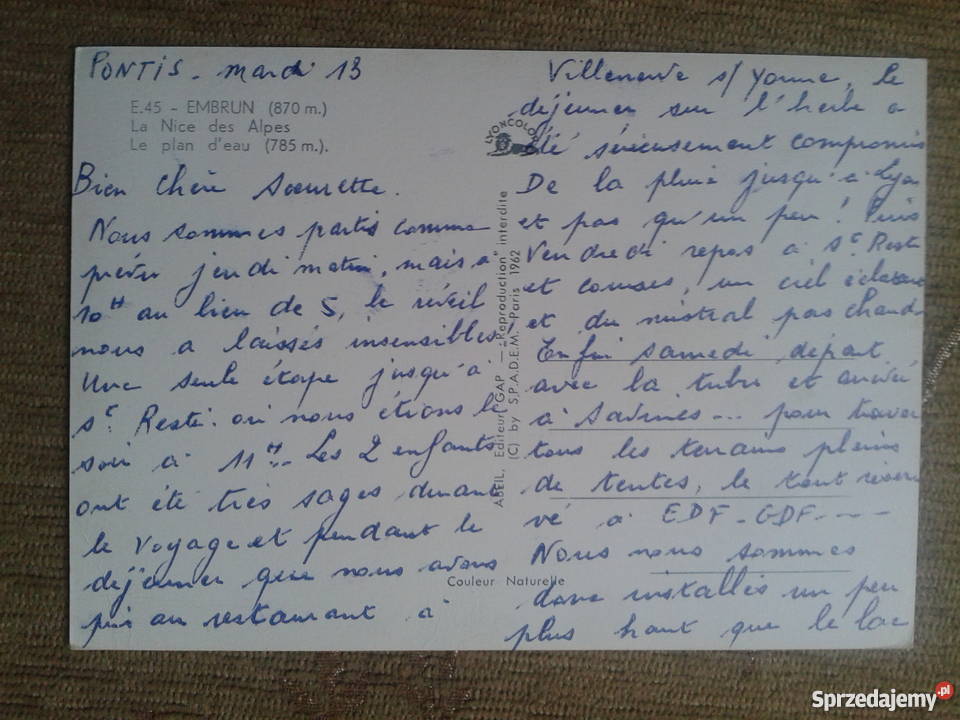 PONTIS - mardi 13
E.45 - EMBRUN (870 m.)
La Nice des Alpes
Le plan d'eau (785 m.).
Bien Chère Soeurette.
Nous sommes partis comme
prévu jeudi matin, mais à
10H au lieu de 5, le réveil
nous a laissés insensibles.
Une seule étape jusqu'à
St. Resti. où nous étions le
soir à 11H... Les 2 enfants
ont été très sages durant
le voyage et pendant le
déjeuner que nous avons
pris au restaurant à
Villeneuve s/Yonne, le
déjeuner sur l'herbe a
été sérieusement compromis
De la pluie jusqu'à Lyon
et pas qu'un peu ! Puis
Vendredi repos à St Resti
et courses, un ciel éclatant
et du mistral pas chaud.
Enfin samedi départ
avec la tribu et arrivée
à Savines... pour trouver
tous les terrains pleins
de tentes, le tout réser-
vé à EDF-GDF----
Nous nous sommes
donc installés un peu
plus haut que le lac
LYONCOLOR
ABEIL, Editeur GAP — "Reproduction" interdite
(C) by S.P.A.D.E.M. Paris 1962
Couleur Naturelle
Sprzedajemy.pl